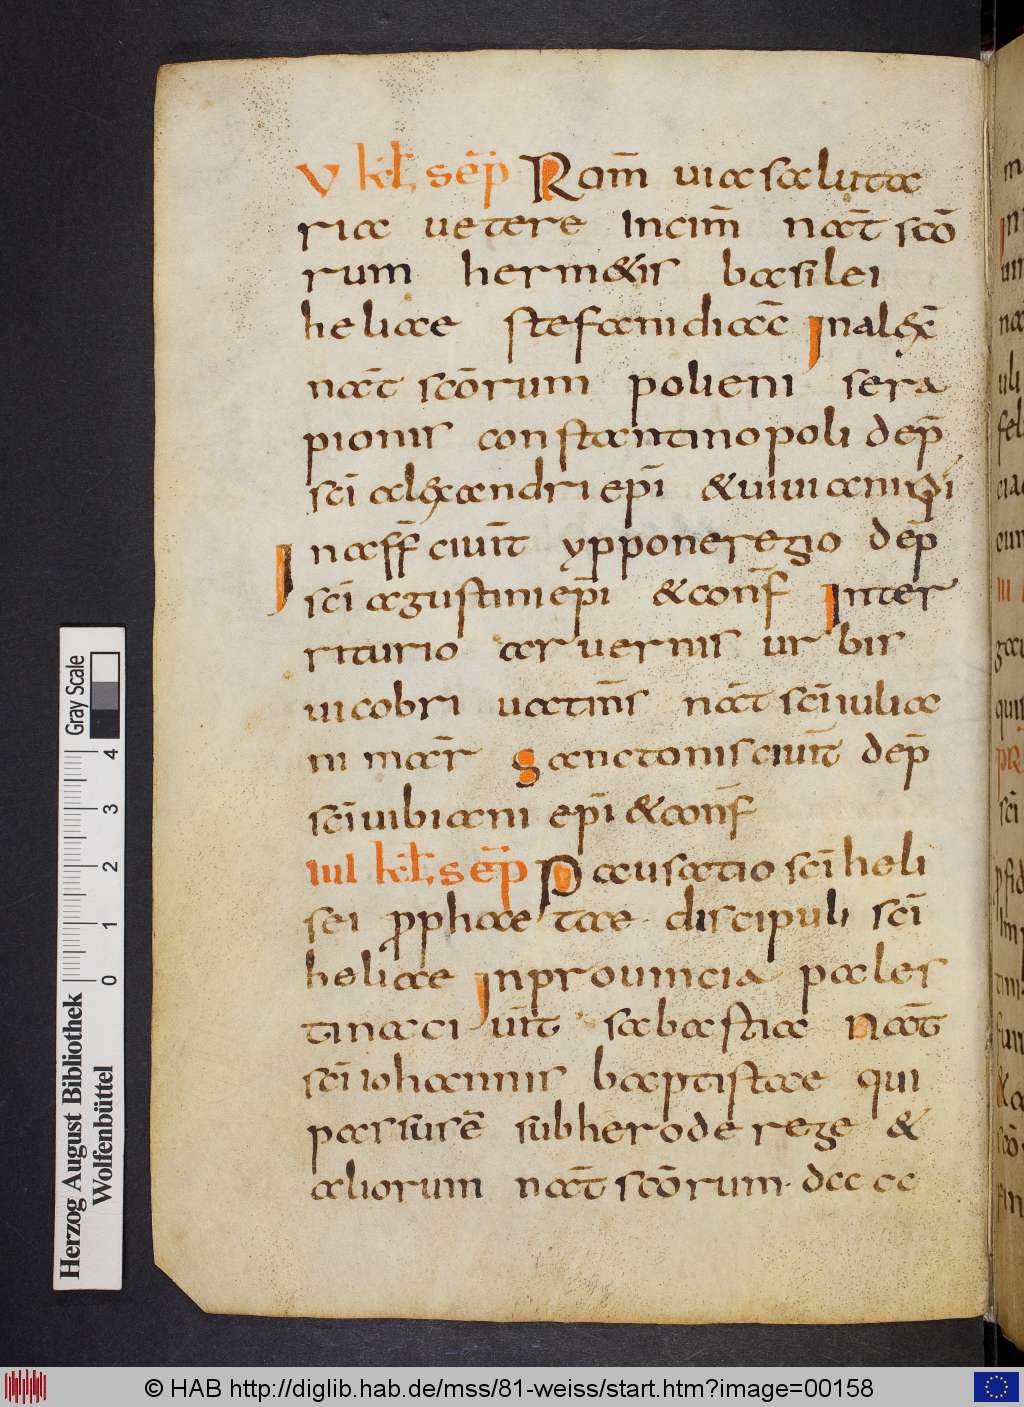 V kƚ sēp Rom̄ uia saluta
ria uetere incim̄ nat̄ scō
rum hermetis basilei
heliae stefani diac̄ In alex̄
nat̄ scōrum polieni sera
pionis constantinopoli dep̄
scī alexandri ep̄i & uiuiani ep̄i
In aff̄ ciuīt ypponeregio dep̄
scī agustini ep̄i & conf̄ Inter
riturio aruernis urbis
uico bri uatin̄s nat̄ scī iulia
ni mar̄ Sanctonis ciuīt dep̄
scī uibiani ep̄i & conf̄
IIII kƚ sēp Pausatio scī heli
sei prophaetae discipuli scī
heliae In prouincia pales
tina ciuīt sabastiae nat̄
scī iohannis baptistae qui
passus ē sub herode rege &
aliorum nat̄ scōrum dcccc
Herzog August Bibliothek
Wolfenbüttel
Gray Scale
0 1 2 3 4
© HAB http://diglib.hab.de/mss/81-weiss/start.htm?image=00158